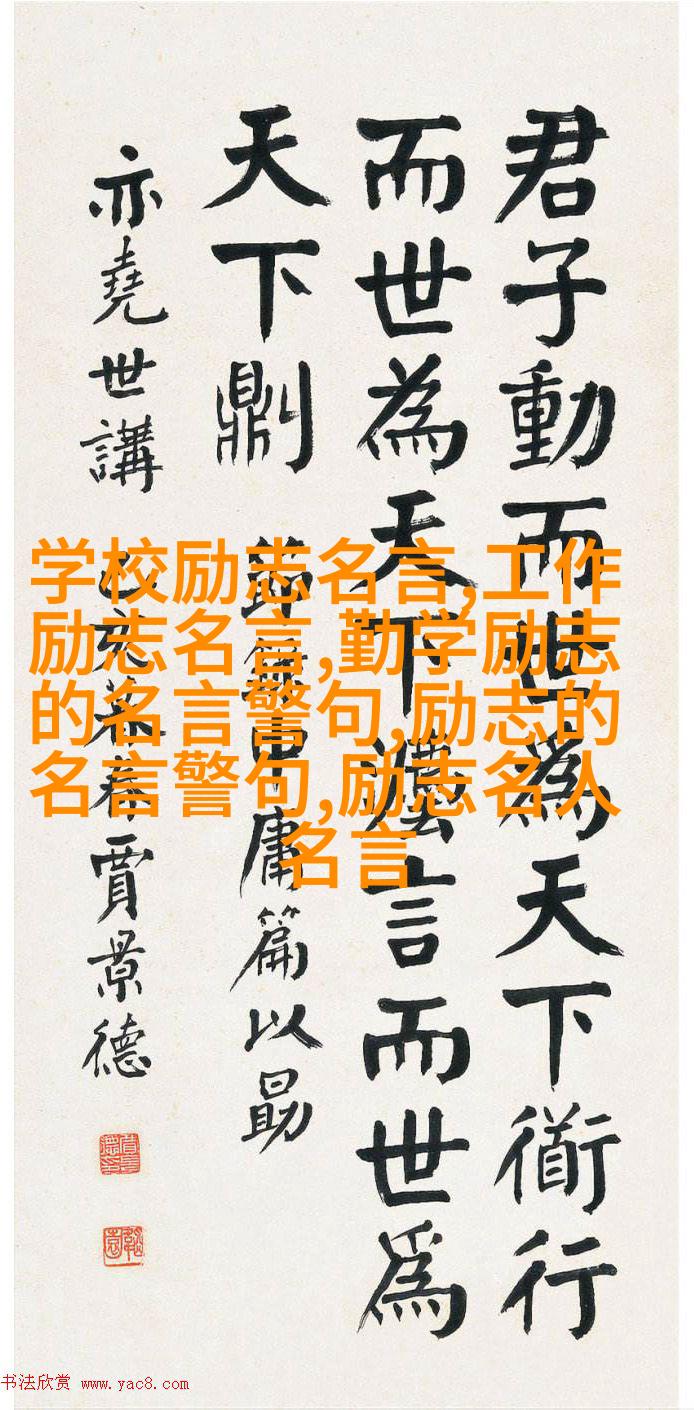 君子動而世為天下衜行
而世為天下灋言而世為
天下𠟭
節錄中庸篇以勗
亦堯世講 乙亥暮春賈景德
学校励志名言,工作
励志名言,勤学励志
的名言警句,励志的
名言警句,励志名人
名言
书法欣赏 www.yac8.com